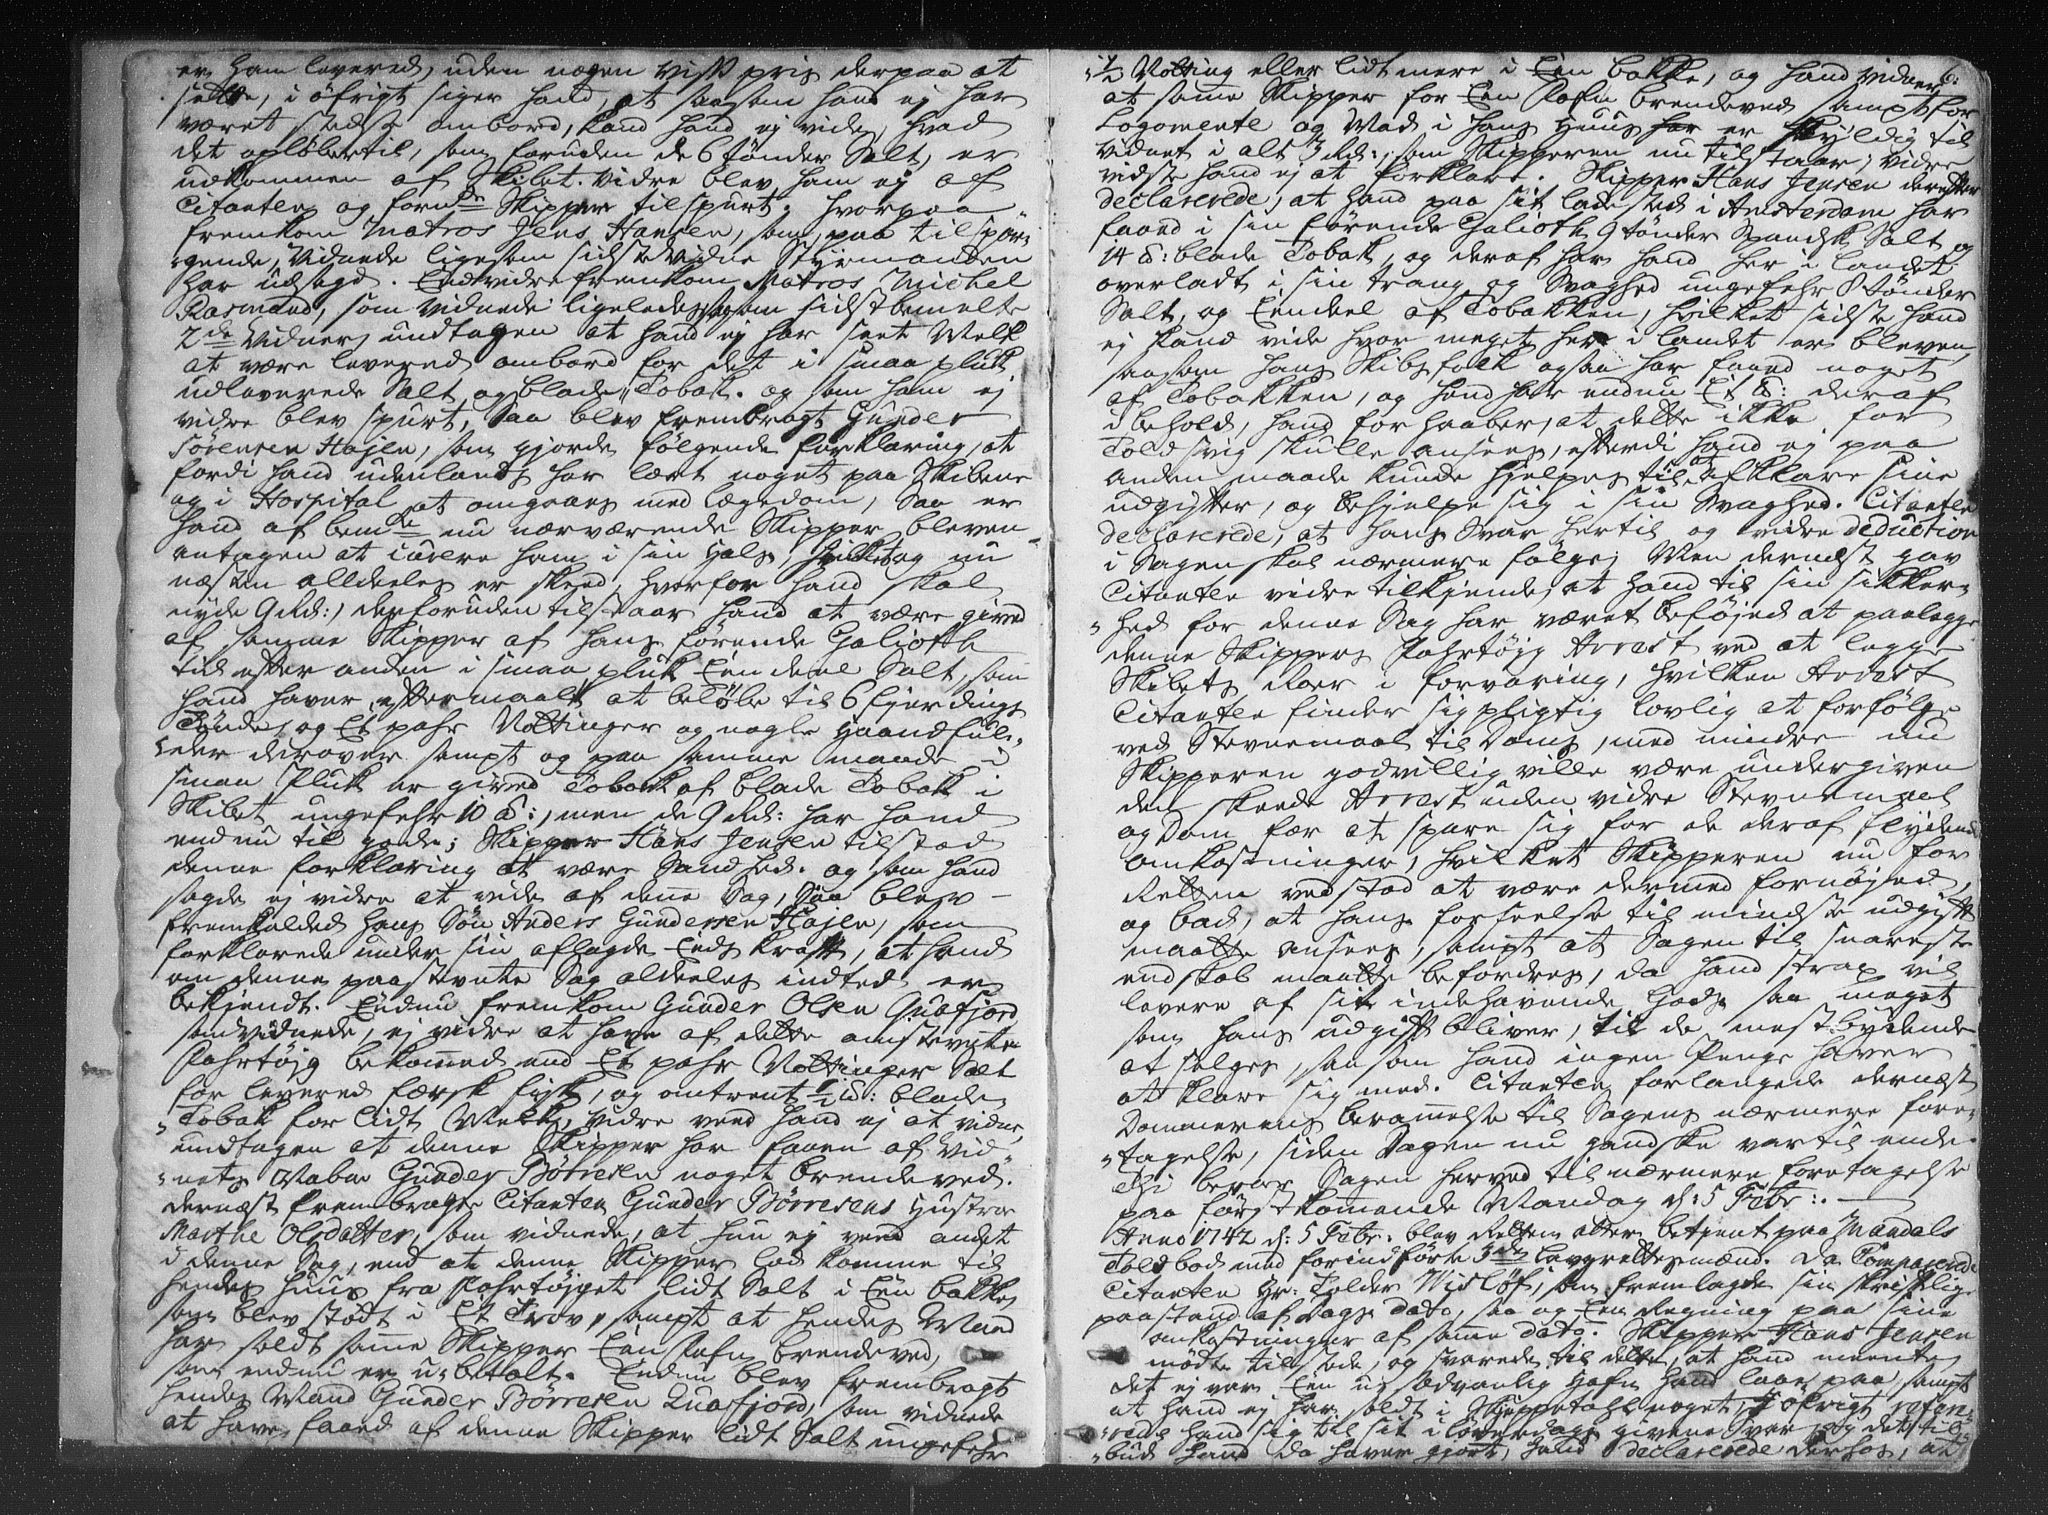 er ham levered, uden nogen vist pris derpaa at
sette, i øfrigt siger hand, at saasom hand ej har
været stedse ombord, kand hand ej vide, hvad
det opløber til, som foruden de 6 tønder Salt, er
udkommen af Skibet. Vidre blev ham ej af
Citanten og fornde Skipper tilspurt; hvorpaa
fremkom Matros Jens Hansen, som paa tilspør-
gende, Vidnede ligesom sidste Vidne Styrmanden
har udsagd. Endvidre fremkom Matros Michel
Rasmusd, som vidnede ligeledes som sidstbemelte
2de Vidner, undtagen at hand ej har seet Melk
at være levered ombord for det i smaa pluk
udleverede Salt og blade Tobak. og som ham ej
vidre blev spurt, saa blev frembragt Gunder
Sørensen Højen, som gjorde følgende forklaring, at
fordi hand udenlands har lært noget paa Skibene
og i Hospital at omgaaes med lægedom, saa er
hand af bemte nu nærværende Skipper bleven
antagen at curere ham i sin Hals, hvilket og nu
næsten alldeeles er skeed, hvorfor hand skal
nyde 9 Rd:, desforuden tilstaar hand at være gived
af samme Skipper af hans førende Galioth
tid efter anden i smaa pluk Een deel Salt, som
hand haver eftermaalt at beløbe til 6 fjerdings
Tønder og Et pahr Nøttinger og nogle Haandful-
der derover sampt og paa samme maade i
smaa Pluk er gived Tobak af blade Tobak i
Skibet ungefehr 10 ℔:, men de 9 Rd: har hand
endnu til gode; Skipper Hans Jensen tilstod
denne forklaring at være Sandhed. og som hand
sagde ej vidre at vide af denne Sag, Saa blev
fremkalded hans Søn Anders Gundersen Højen, som
forklarede under sin aflagde Eeds kraft, at hand
om denne paastevnte Sag aldeeles indted er
bekjendt. Endnu fremkom Gunder Olsen Quafjord
som vidnede, ej vidre at have af dette omstevnte
Fahrtøjg bekommed end Et pahr Nøttinger Salt
for levered færsk fisk, og omtrent 1/2 ℔: blade
Tobak for lidt Melk, vidre veed hand ej at vidne,
undtagen at denne Skipper har faaen af Vid-
nets Naboe Gunder Børresen noget brendeved.
dernæst frembragte Citanten Gunder Børresens Hustroe
Marthe Olsdatter, som vidnede, at hun ej veed andet
i denne Sag, end at denne Skipper lod komme til
hendes Huus fra Fahrtøjget lidt Salt i Een bakke
som blev stødt i Et Trov, sampt at hendes Mand
har soldt samme Skipper Een Fafn brendeved,
som endnu er u-betalt. Endnu blev frembragt
hendes Mand Gunder Børresen Quafjord, som vidnede
at have faaed af denne Skipper lidt Salt ungefehr
1/2 Nøtting eller lidt mere i Een bakke, og hand vidner
6.
at same Skipper for Een Fafn brendeved sampt for
Logemente og Mad i hans Huus er skyldig til
vidnet i alt 3 Rd:, som Skipperen nu tilstaar; vidre
vidste hand ej at forklare. Skipper Hans Jensen derefter
declarerede, at hand paa sit ladested i Amsterdam har
faaed i sin førende Galioth 9 tønder Spandsk Salt og
14 ℔: blade Tobak, og deraf har hand her i landet
overladt i sin trang og Svaghed ungefehr 8 tønder
Salt, og Eendeel af Tobakken, hvilket sidste hand
ej kand vide hvor meget her i landet er bleven
saasom hans Skibsfolk ogsaa har faaed noget
af Tobakken, og hand har endnu Et ℔: deraf
i behold, hand forhaaber, at dette ikke for
Told svig skulle ansees, efterdi hand ej paa
anden maade kunde hjelpes til at afklare sine
udgifter, og behjelpe sig i sin Svaghed. Citanten
declarerede, at hans Svar hertil og vidre deduction
i Sagen skal nærmere følge; Men dernæst gav
Citanten vidre tilkjende, at hand til sin sikker-
hed for denne Sag har været beføjed at paalegge
denne Skippers Fahrtøjg Arrest ved at legge
Skibets Roer i forvaring, hvilken Arrest
Citanten finder sig pligtig lovlig at forfølge
ved Stevnemaal til Doms, med mindre nu
Skipperen godvillig ville være undergiven
den skeede Arrest uden vidre Stevnemaal
og Dom for at spare sig for de deraf flydende
omkostninger, hvilket Skipperen nu for
Retten vedstod at være dermed fornøjed,
og bad, at hans forseelse til mindste udgift
maatte ansees, sampt at Sagen til snareste
endskab maatte befordres, da hand strax vil
levere af sit indehavende Gods saa meget
som hans udgift bliver, til de mestbydende
at selges, saasom hand ingen Penge haver
at klare sig med. Citanten forlangede dernæst
Dommerens berammelse til Sagens nærmere fore-
tagelse, siden dagen nu gandske var til ende.
Thi beroer Sagen herved til nærmere foretagelse
paa førstkomande Mandag d: 5 Febr:.
Anno 1742 d: 5 Febr: blev Retten atter betjent paa Mandals
Toldbod med forindførte 3de laugrettesmænd. Da Comparerede
Citanten Hr: Tolder Wisløf, som fremlagde sin skriftlige
paastand af Dags dato, saa og Een Regning paa sine
omkostninger af same dato. Skipper Hans Jensen
mødte tilstede, og svarede til dette, at hand meente
det ej var Een usædvanlig Hafn hand laae paa sampt
at hand ej har soldt i Skippetahl noget, I øfrigt refere-
rede hand sig til sit i løverdags givene Svar, og det til-
bud hand da haver gjort, hand declarerede derhos, at